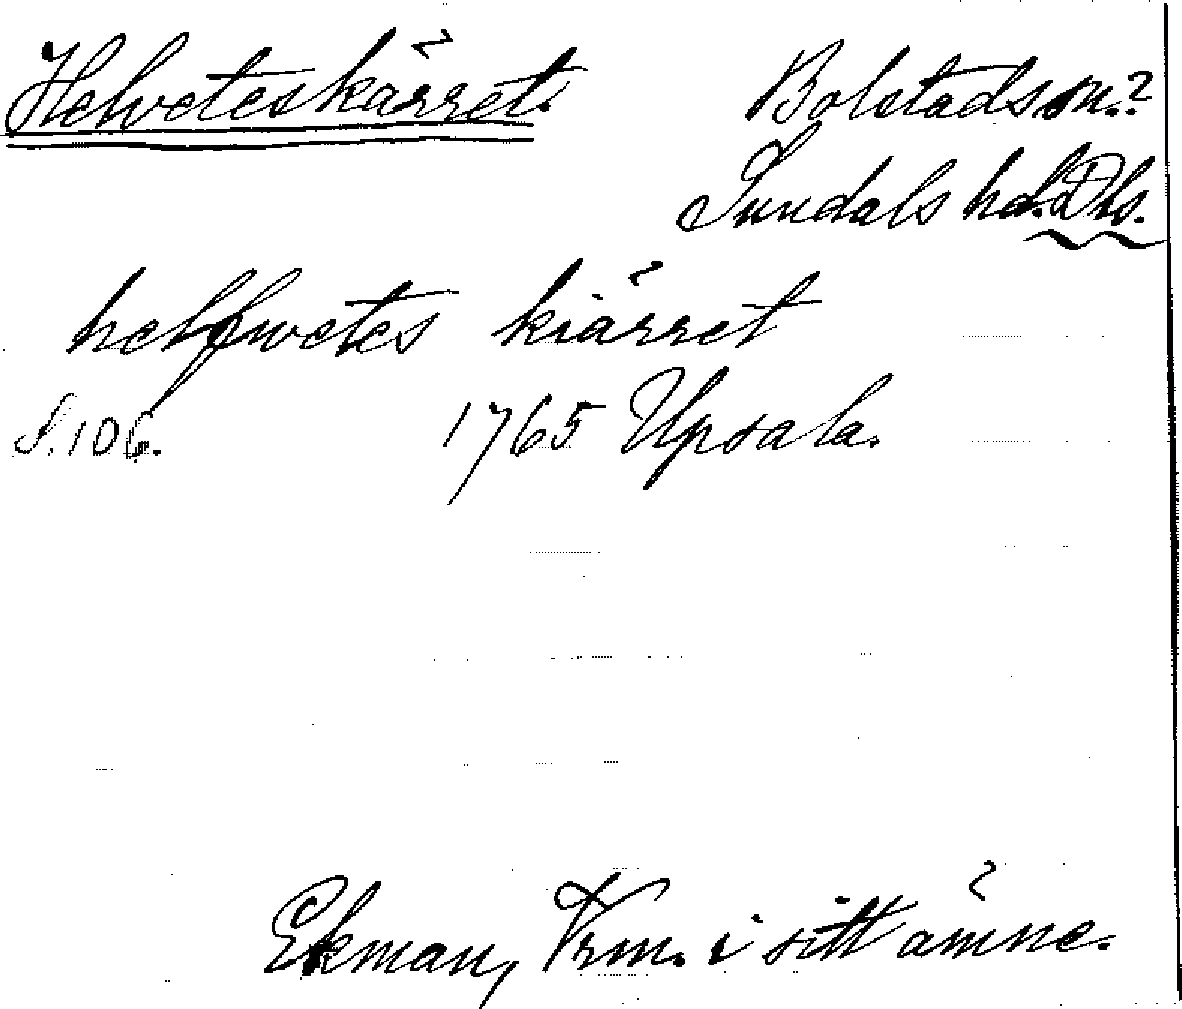 Helveteskärret. Bolstads sn.?
Sundals hd. Dls.
helfwetes kiärret
S. 106. 1765 Upsala.
Ekman, Vrm. i sitt ämne.